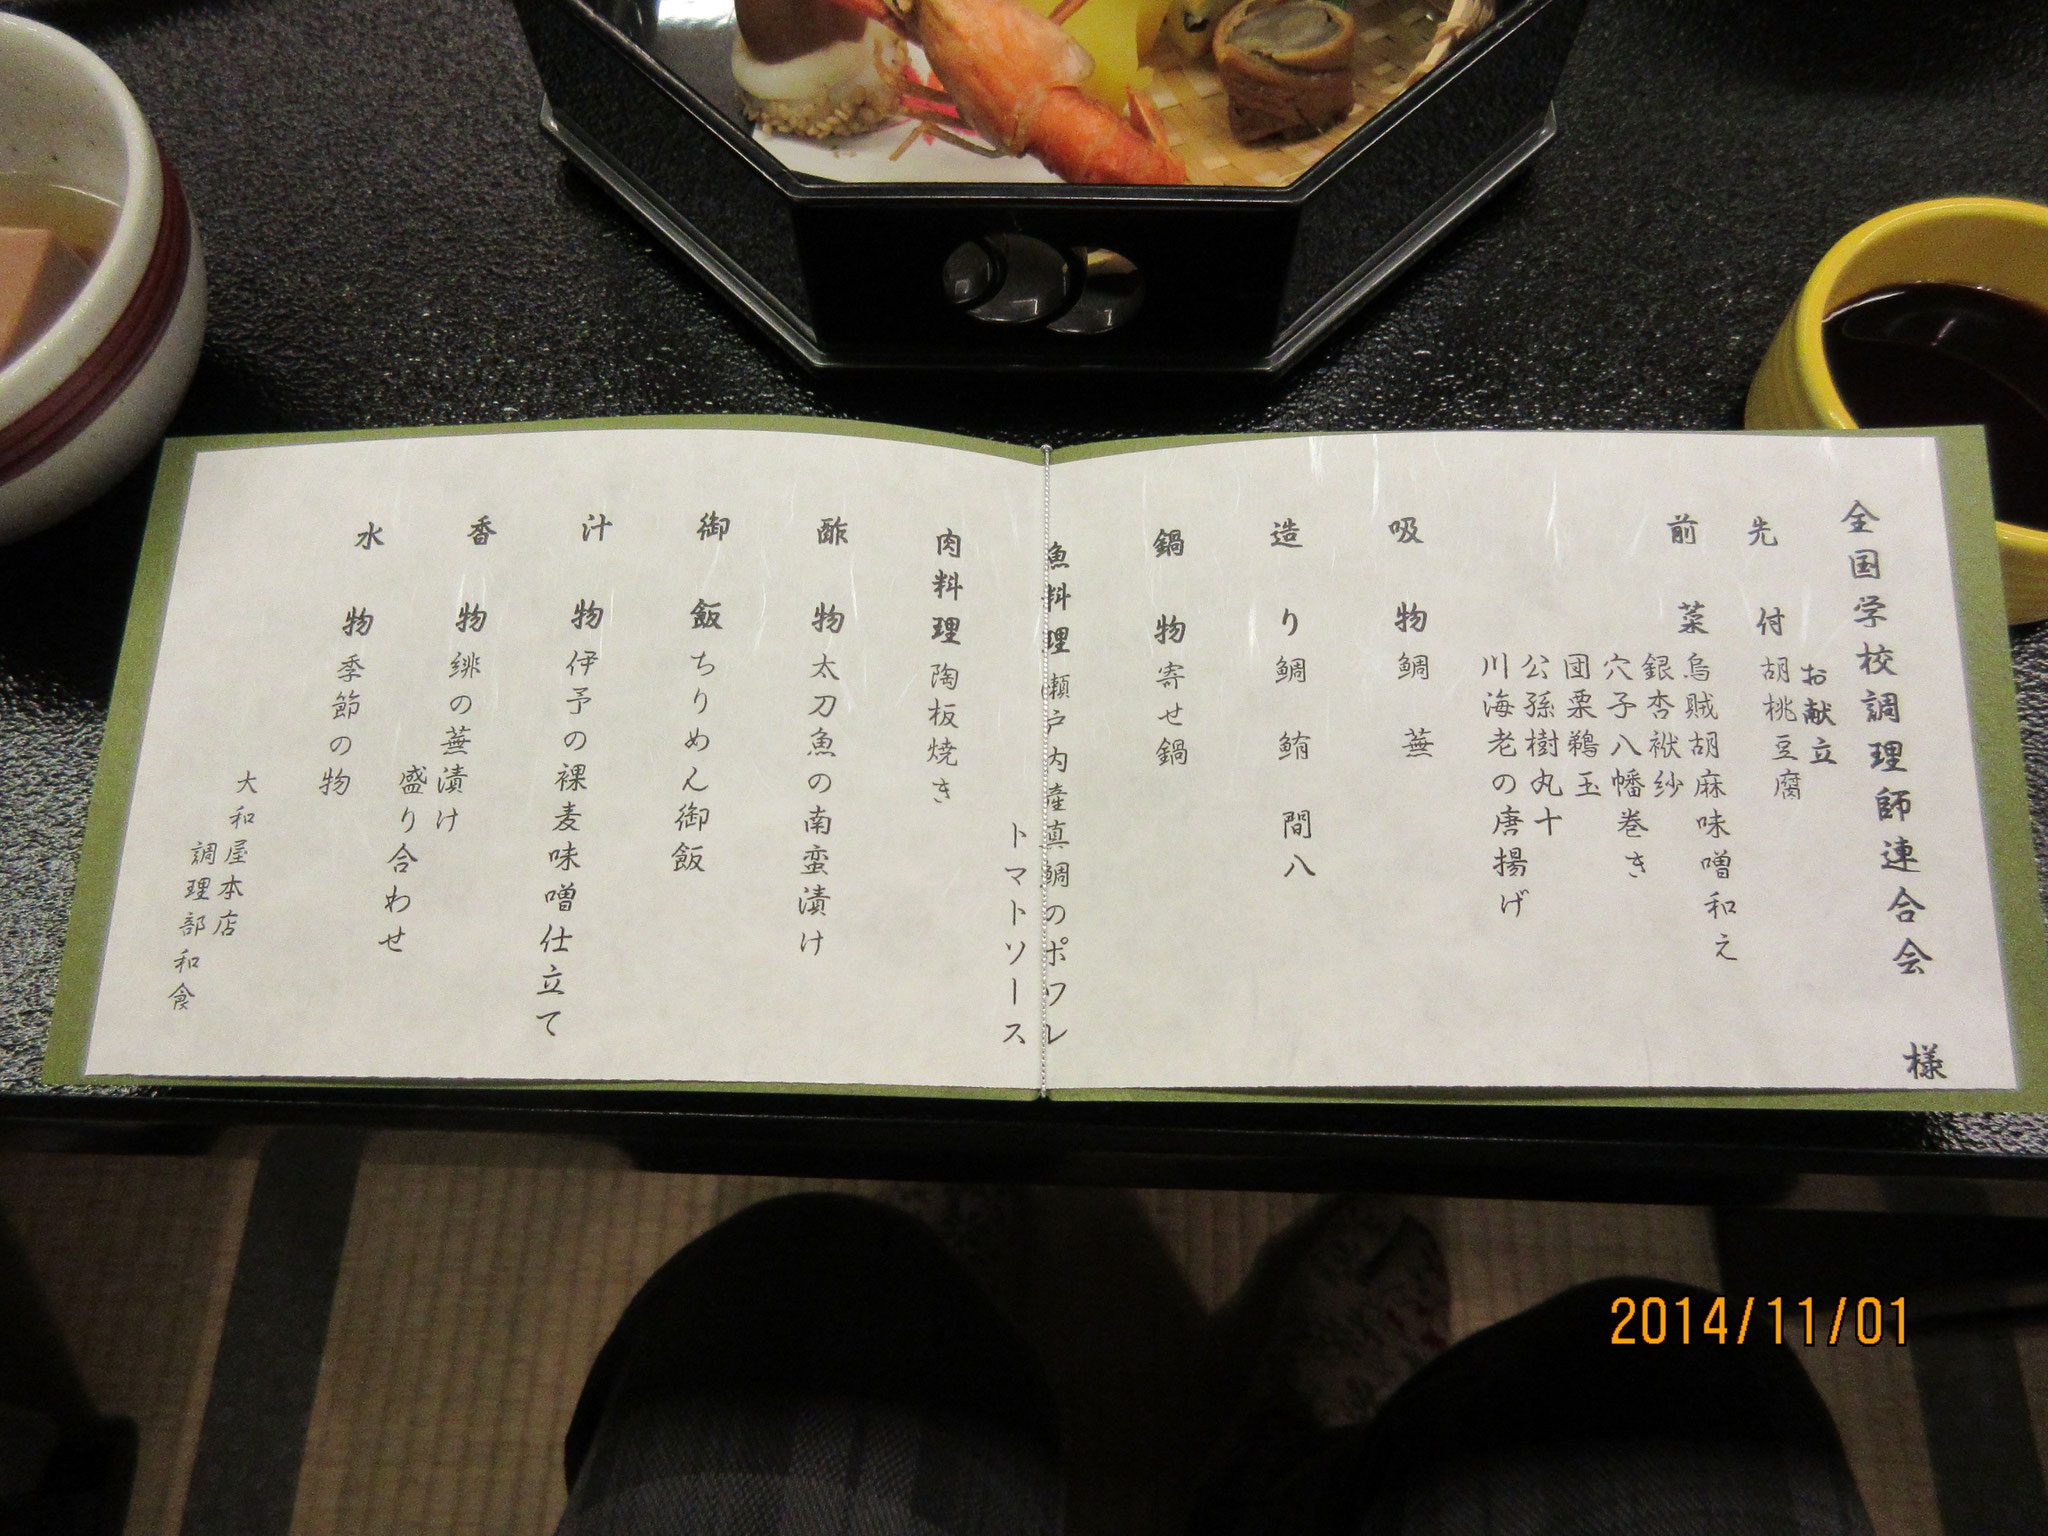 全国学校調理師連合会 様
お献立
先付 胡桃豆腐
前菜 烏賊胡麻味噌和え
銀杏袱紗
穴子八幡巻き
団栗鶉玉
公孫樹丸十
川海老の唐揚げ
吸物 鯛 蕪
造り 鯛 鮪 間八
鍋物 寄せ鍋
魚料理 瀬戸内産真鯛のポワレ
トマトソース
肉料理 陶板焼き
酢物 太刀魚の南蛮漬け
御飯 ちりめん御飯
汁物 伊予の裸麦味噌仕立て
香物 緋の蕪漬け
盛り合わせ
水物 季節の物
大和屋本店
調理部和食
2014/11/01